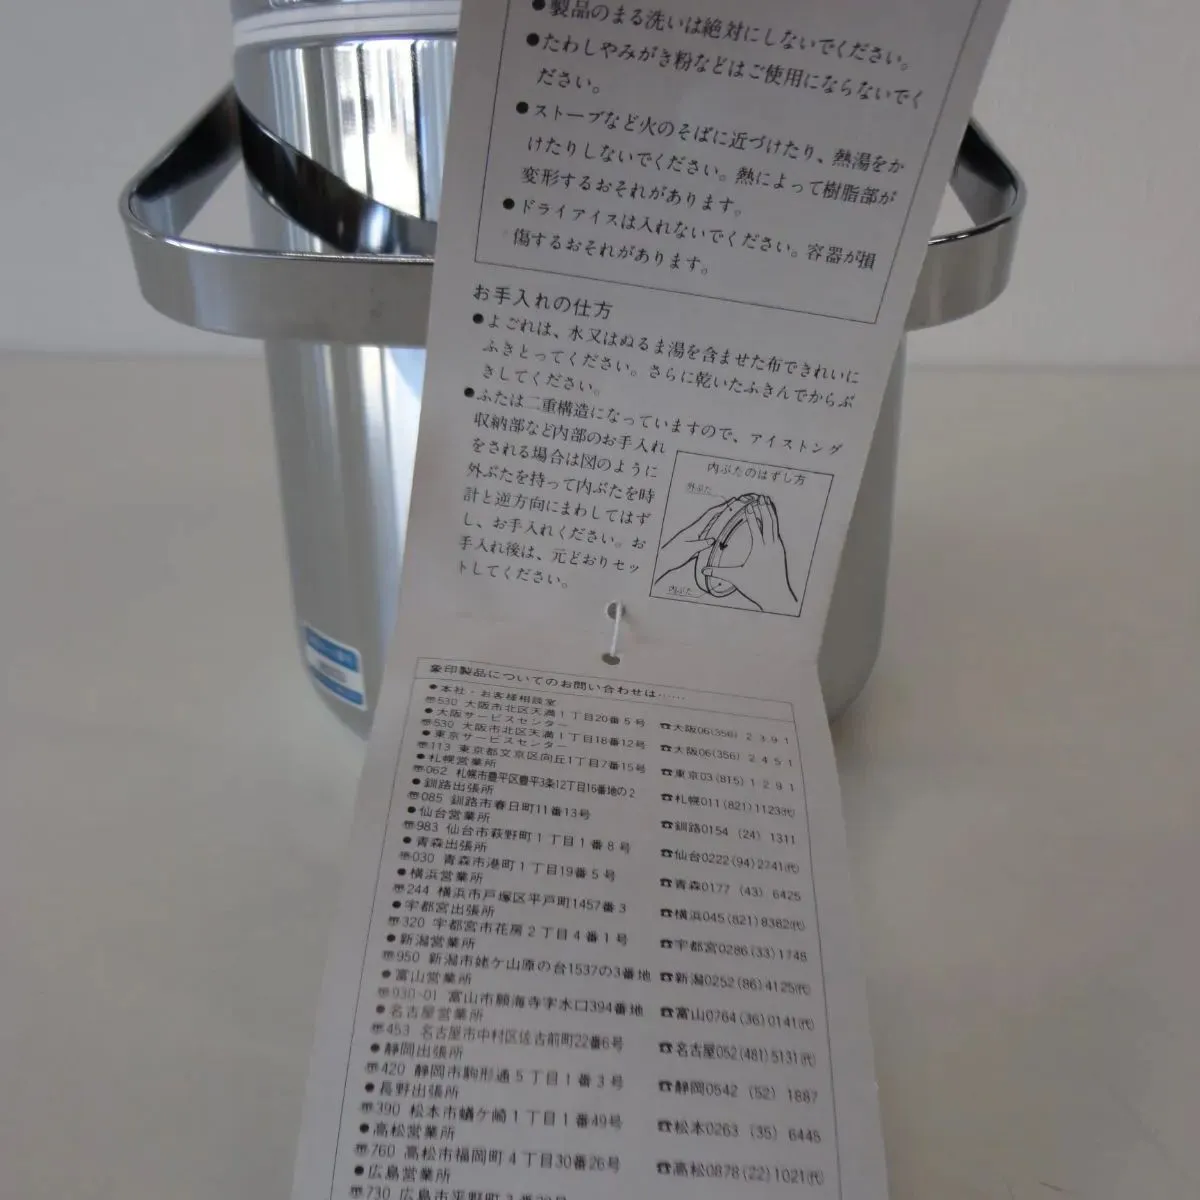 ●製品のまる洗いは絶対にしないでください。
●たわしやみがき粉などはご使用にならないでく
ださい。
●ストーブなど火のそばに近づけたり、熱湯をか
けたりしないでください。熱によって樹脂部が
変形するおそれがあります。
●ドライアイスは入れないでください。容器が損
傷するおそれがあります。
お手入れの仕方
●よごれは、水又はぬるま湯を含ませた布できれいに
ふきとってください。さらに乾いたふきんでからぶ
きしてください。
●ふたは二重構造になっていますので、アイストング
収納部など内部のお手入れ
をされる場合は図のように
外ぶたを持って内ぶたを時
計と逆方向にまわしてはず
し、お手入れください。お
手入れ後は、元どおりセッ
トしてください。
内ぶたのはずし方
外ぶた
内ぶた
象印製品についてのお問い合わせは……
●本社・お客様相談室
〒530 大阪市北区天満1丁目20番5号 ☎大阪06(356)2391
●大阪サービスセンター
〒530 大阪市北区天満1丁目18番12号 ☎大阪06(356)2451
●東京サービスセンター
〒113 東京都文京区向丘1丁目7番15号 ☎東京03(815)1291
●札幌営業所
〒062 札幌市豊平区豊平3条12丁目16番地の2 ☎札幌011(821)1123(代)
●釧路出張所
〒085 釧路市春日町11番13号 ☎釧路0154(24)1311
●仙台営業所
〒983 仙台市萩野町1丁目1番8号 ☎仙台0222(94)2741(代)
●青森出張所
〒030 青森市港町1丁目19番5号 ☎青森0177(43)6425
●横浜営業所
〒244 横浜市戸塚区平戸町1457番3 ☎横浜045(821)8382(代)
●宇都宮出張所
〒320 宇都宮市花房2丁目4番1号 ☎宇都宮0286(33)1748
●新潟営業所
〒950 新潟市姥ケ山原の台1537の3番地 ☎新潟0252(86)4125(代)
●富山営業所
〒930-01 富山市願海寺字水口394番地 ☎富山0764(36)0141(代)
●名古屋営業所
〒453 名古屋市中村区佐古前町22番6号 ☎名古屋052(481)5131(代)
●静岡出張所
〒420 静岡市駒形通5丁目1番3号 ☎静岡0542(52)1887
●長野出張所
〒390 松本市蟻ケ崎1丁目1番49号 ☎松本0263(35)6445
●高松営業所
〒760 高松市福岡町4丁目30番26号 ☎高松0878(22)1021(代)
●広島営業所
〒730 広島市平野町